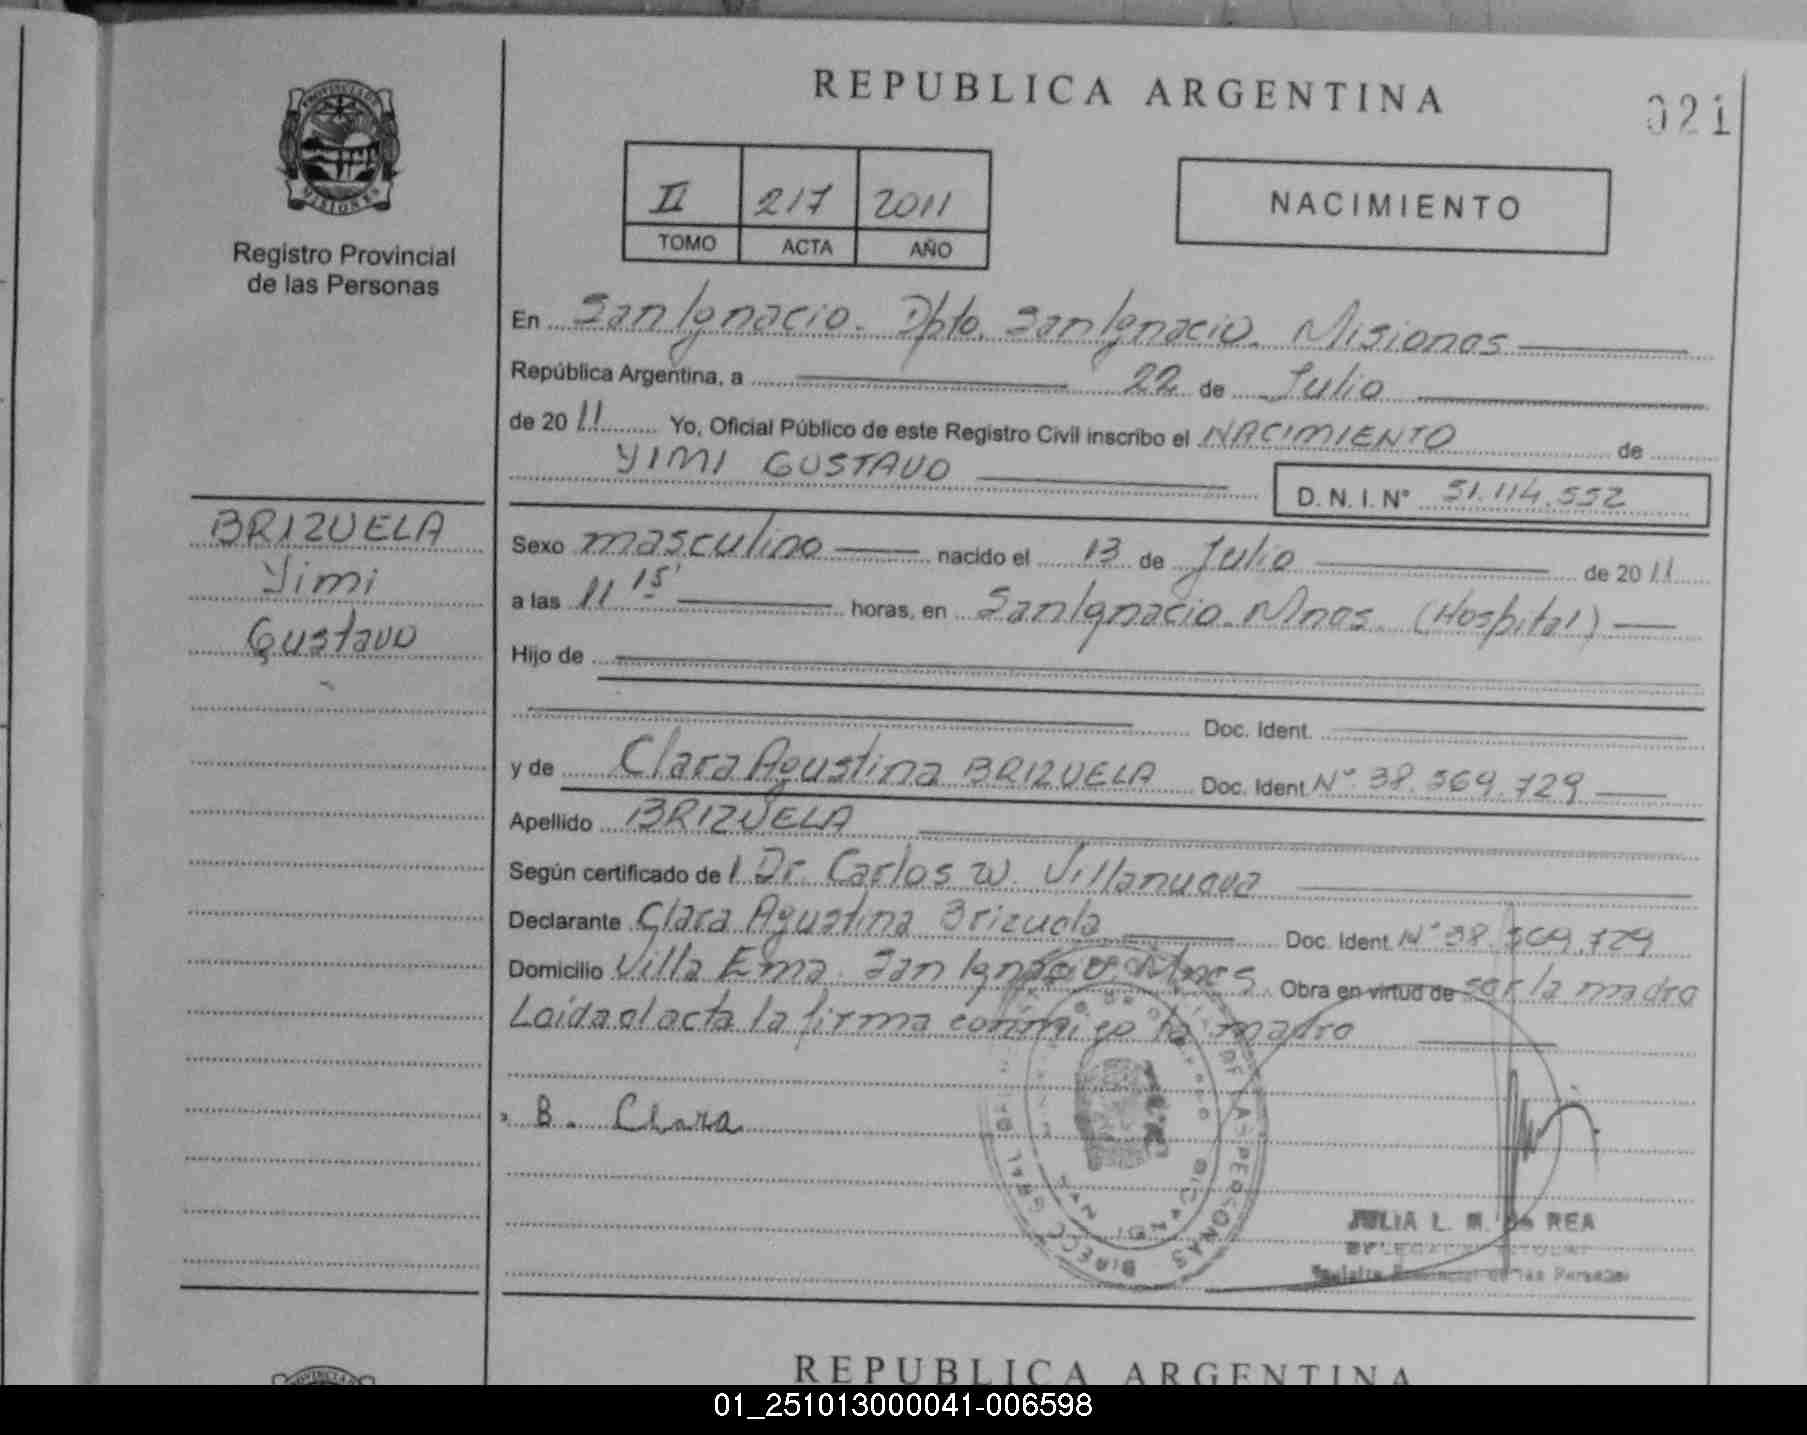 REPUBLICA ARGENTINA
021
PROVINCIA DE
MISIONES
Registro Provincial
de las Personas
II 217 2011
TOMO ACTA AÑO
NACIMIENTO
En San Ignacio. Dpto. San Ignacio. Misiones
República Argentina, a 22 de Julio
de 2011 Yo, Oficial Público de este Registro Civil inscribo el NACIMIENTO de
YIMI GUSTAVO
D. N. I. N° 51.114.552
BRIZUELA
Yimi
Gustavo
Sexo masculino nacido el 13 de Julio de 2011
a las 11 15' horas, en San Ignacio. Mnes. (Hospital)
Hijo de
Doc. Ident.
y de Clara Agustina BRIZUELA Doc. Ident. N° 38.369.729
Apellido BRIZUELA
Según certificado del Dr. Carlos W. Villanueva
Declarante Clara Agustina Brizuela Doc. Ident. N° 38.369.729
Domicilio Villa Ema. San Ignacio. Mnes. Obra en virtud de ser la madre
Leída el acta la firma conmigo la madre
B. Clara
DE LAS PERSONAS DIRECC
JULIA L. M. de REA
Registro Provincial de las Personas
REPUBLICA ARGENTINA
01_251013000041-006598